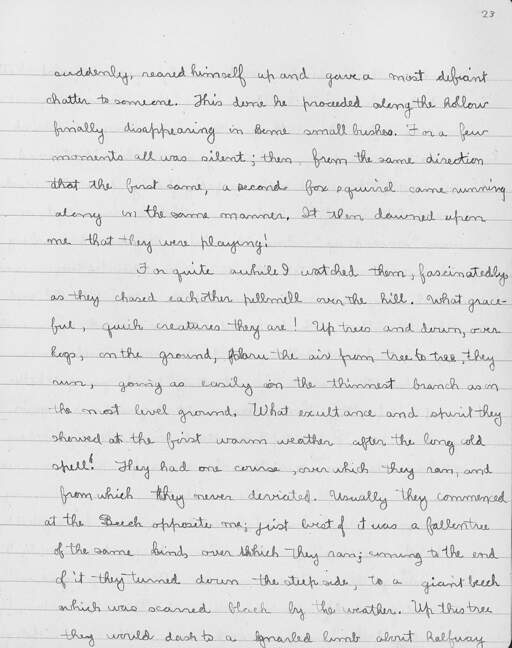 23
suddenly, reared himself up and gave a most defiant
chatter to someone. This done he proceeded along the hollow
finally disappearing in some small bushes. For a few
moments all was silent; then, from the same direction
that the first came, a second fox squirrel came running
along in the same manner. It then dawned upon
me that they were playing!
For quite awhile I watched them, fascinatedly
as they chased each other pellmell over the hill. What grace-
ful, quick creatures they are! Up trees and down, over
logs, on the ground, the air from tree to tree, they
run, going as easily on the thinnest branch as on
the most level ground. What exultance and spirit they
showed at the first warm weather after the long cold
spell! They had one course, over which they ran, and
from which they never deviated. Usually they commenced
at the Beech opposite me; just west of it was a fallen tree
of the same kind, over which they ran; coming to the end
of it they turned down the steep side, to a giant beech
which was scarred black by the weather. Up this tree
they would dash to a gnarled limb about halfway